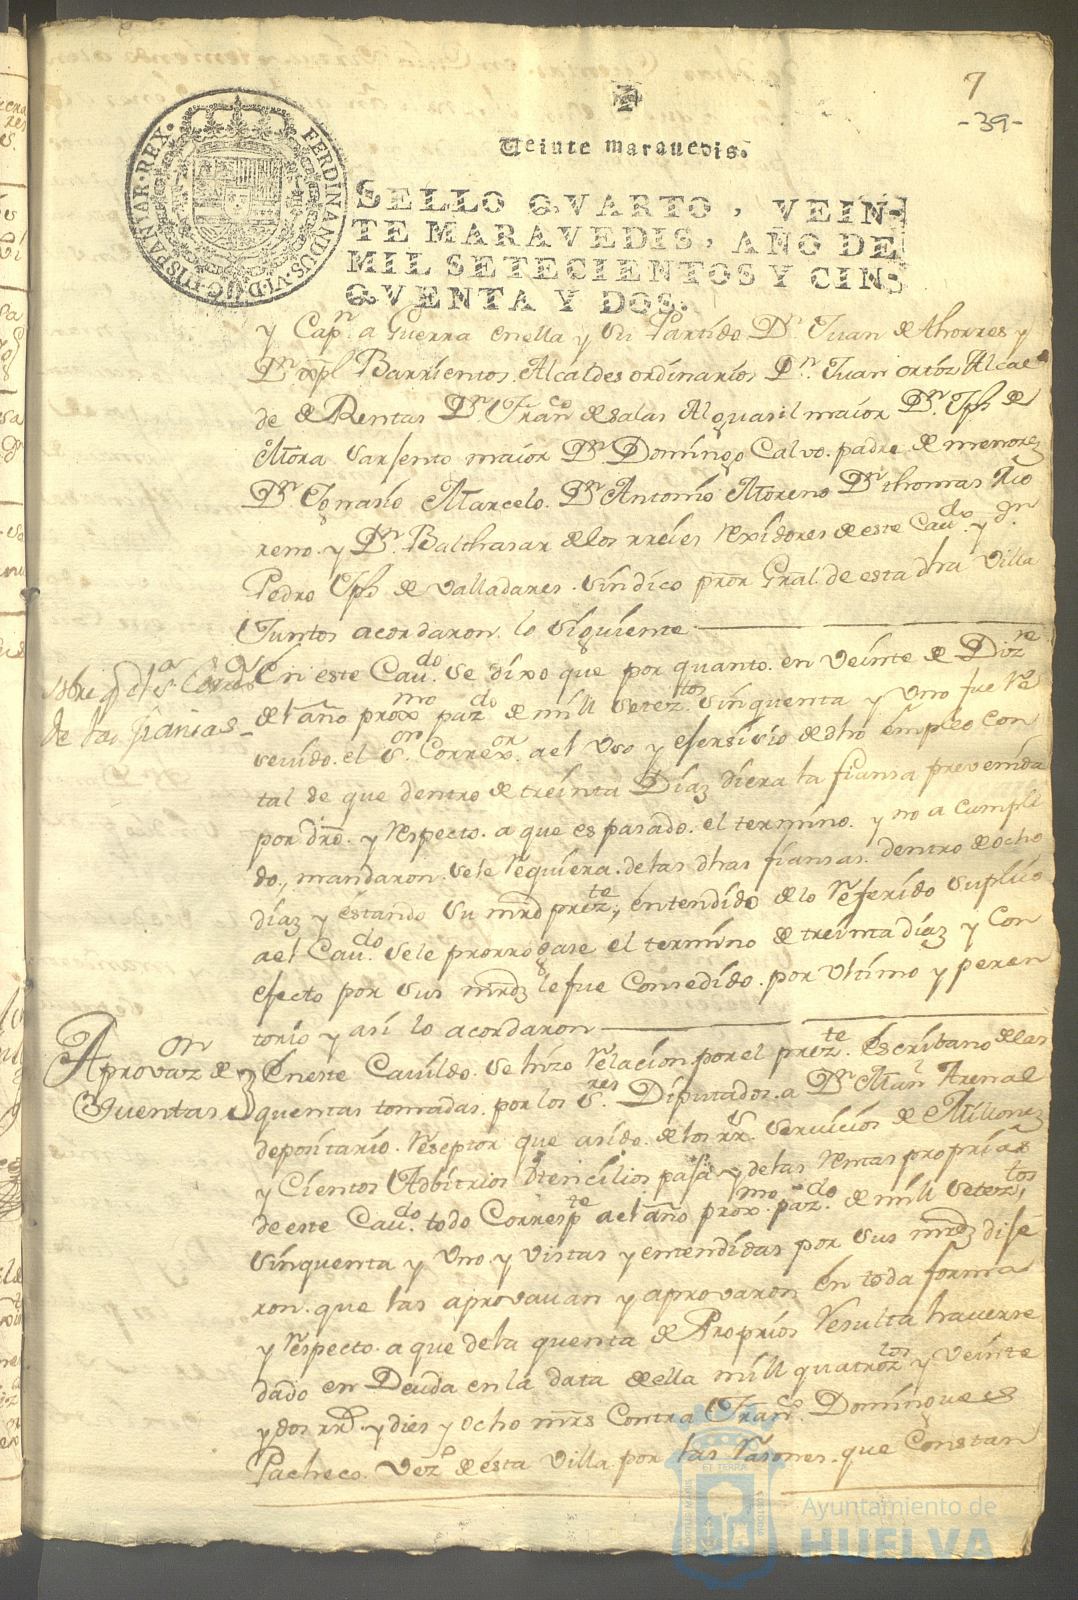 7
-39-
Veinte marauedis.
SELLO QVARTO, VEIN-
TE MARAVEDIS, AÑO DE
MIL SETECIENTOS Y CIN-
QVENTA Y DOS.
FERDINANDUS·VI·D·G·HISPANIAR·REX·
y Capn. a Guerra enella y su Partido Dn. Juan de Thorres y
Dn. xpl Barrientos Alcaldes ordinarios Dn. Juan ortiz Alcae
de de Rentas Dn. Franco. de salas Alguasil maior Dn. Jph de
Mora Sarjento maior Dn. Domingo Calvo padre de menorez
Dn. Ignasio Marcelo. Dn. Antonio Moreno Dn. thomas Mo
reno y Dn. Balthasar de los rreies Rexidores de este Caudo. y Dn.
Pedro Jph de Valladares sindico pror. Gral. de esta dha Villa
Juntos acordaron lo siguiente
En este Caudo. se dixo que por quanto en veinte de Dizre
de la fianza
del año proxmo. pazdo. de mill setez.tos sinquenta y Uno fue Re
sevido el Sor. Correxor. al Uso y exersisio de dho empleo con
tal de que dentro de treinta Diaz diera la fiansa prevenida
por dro. y respecto a que es pasado el termino y no a cumpli
do, mandaron se le requiera de las dhas fiansas dentro de ocho
diaz y estando su mrd prezte, entendido de lo referido suplico
al Caudo. se le prorrogase el termino de treinta diaz y con
efecto por sus mrdz le fue Consedido por ultimo y peren
torio y asi lo acordaron
Aprovazon de
Cuentas
En este Cavildo se hizo relacion por el prezte. Escribano de las
quentas tomadas por los Sres. Diputados a Dn. Manl. Arenal
depositario reseptor que asido de los rrs. servicios de Millonez
y Cientos Adbitrios Utencilios paja y de las rentas proprias
de este Caudo. todo Correspte al año proxmo. pazdo. de mill setez.tos
sinquenta y Uno y vistas y entendidas por sus mrdz dije
ron que las aprovavan y aprovaron en toda forma
y respecto a que de la quenta de Proprios Resulta haverse
dado en Deuda en la data de ella mill quatroz.tos y veinte
y dos rrs. y dies y ocho mrs Contra Franco. Domingues
Pacheco Vezo. de esta Villa por las rasones que Constan
Ayuntamiento de
HUELVA